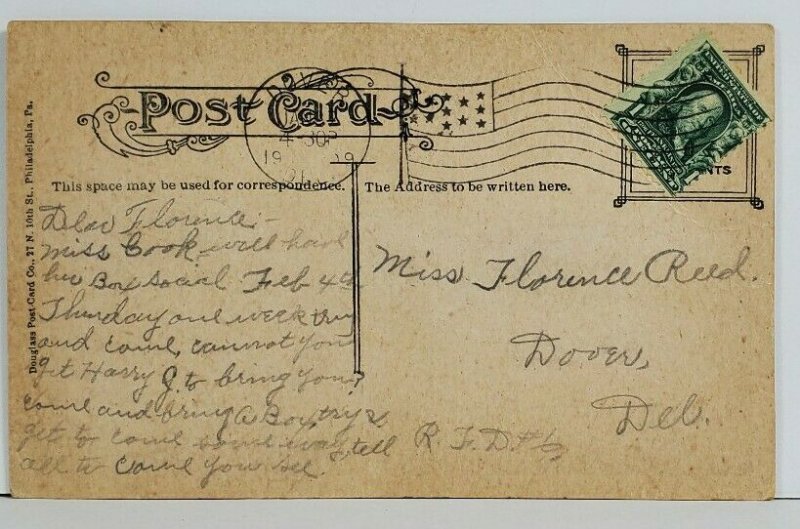 Post Card
DOVER
4 30P
19 09
This space may be used for correspondence.
The Address to be written here.
Douglass Post Card Co., 27 N. 10th St., Philadelphia, Pa.
Dear Florence:-
Miss Cook, will have
her Box social Feb 4th
Thursday one week try
and come, cannot you
get Harry J to bring you?
come and bring a Box, try &
get to come some way, tell
all to come you see.
Miss Florence Reed.
Dover,
Del.
R. F. D. #